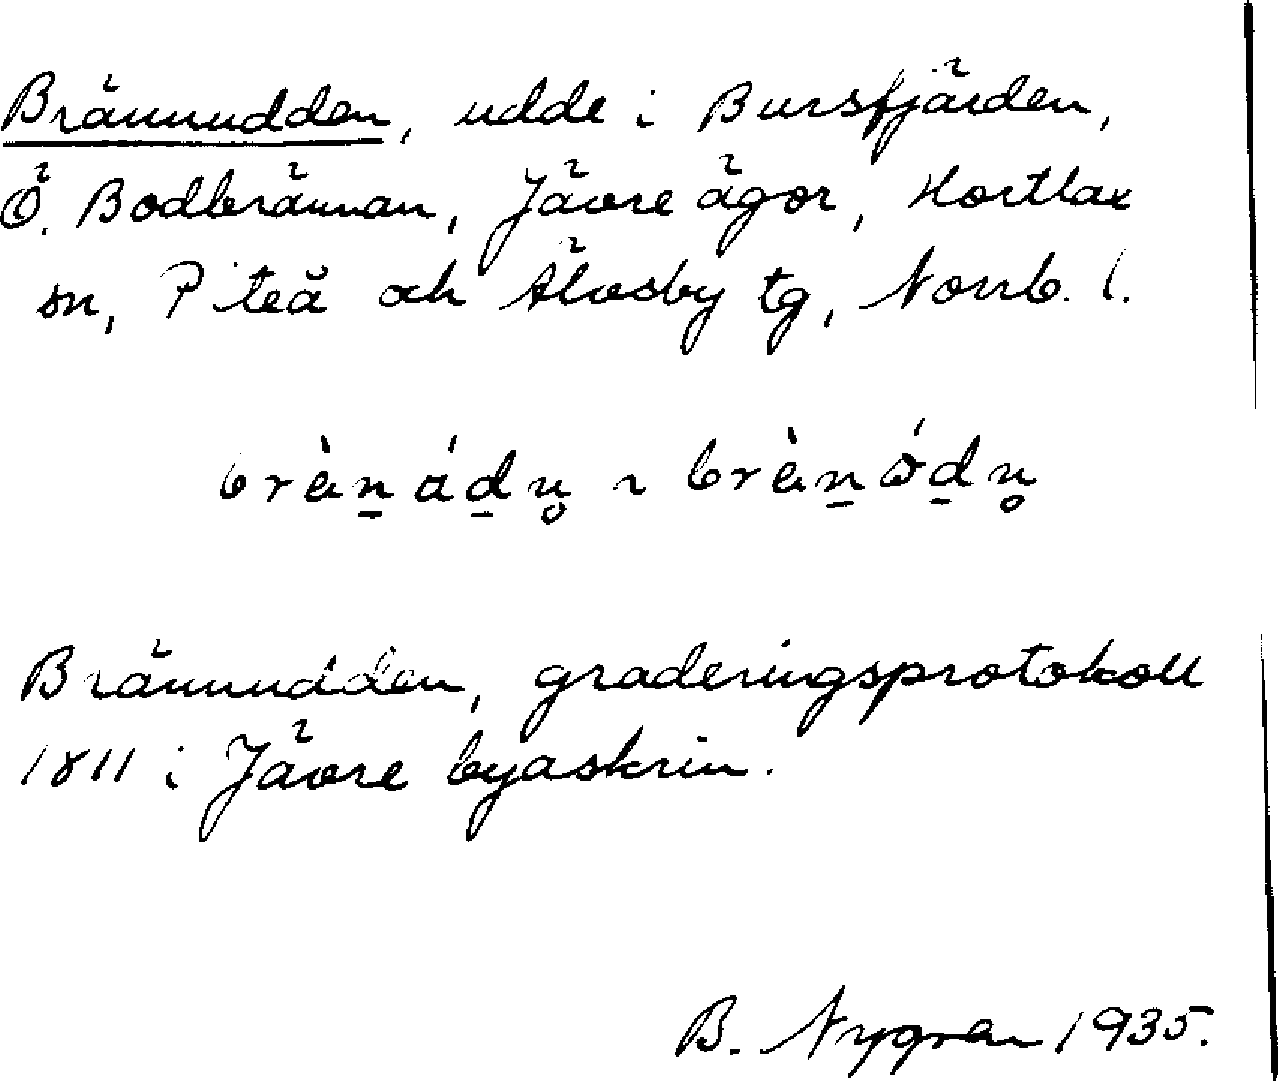 Brännudden, udde i Bursfjärden,
Ö. Bodbrännan, Jävre ägor, Hortlax
sn, Piteå och Älvsby tg, Norrb. l.
brèn̲ád̲n̥ ~ brèn̲ǿd̲n̥
Brännudden, graderingsprotokoll
1811 i Jävre byaskrin.
B. Nygren 1935.